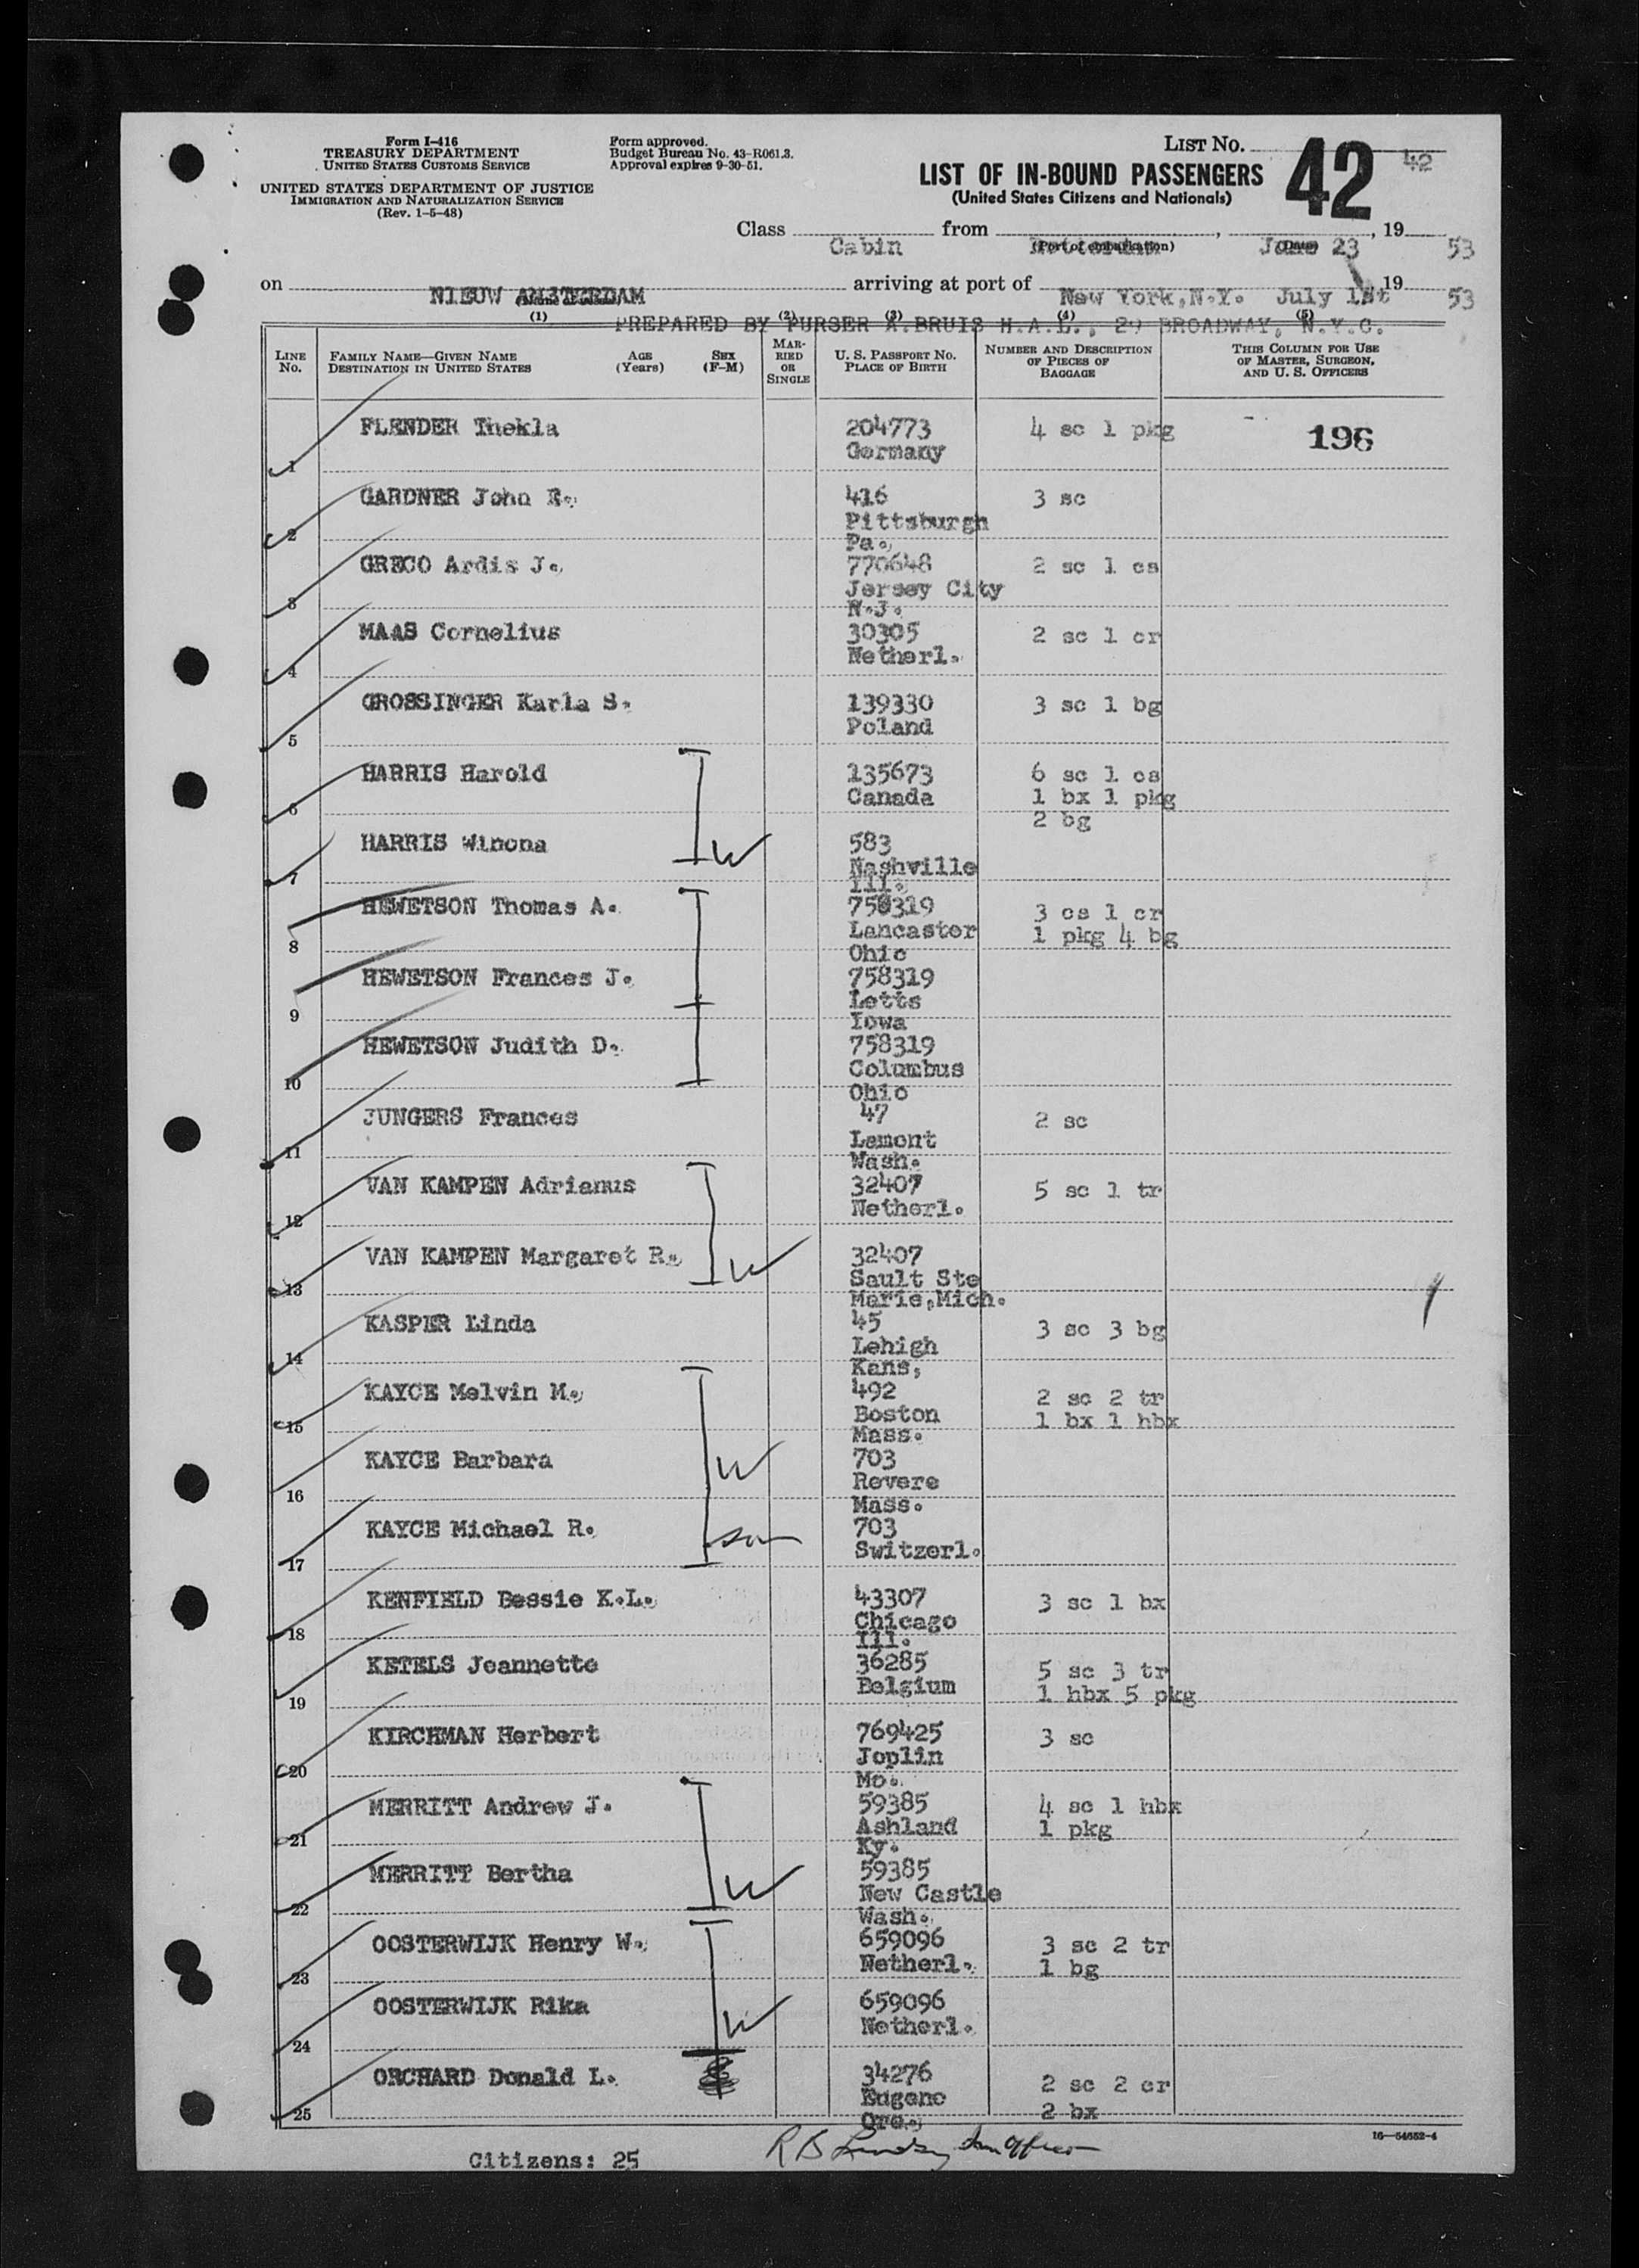 Form I-416
TREASURY DEPARTMENT
UNITED STATES CUSTOMS SERVICE
UNITED STATES DEPARTMENT OF JUSTICE
IMMIGRATION AND NATURALIZATION SERVICE
(Rev. 1-5-48)
Form approved.
Budget Bureau No. 43-R061.3.
Approval expires 9-30-51.
LIST NO. 42 42
LIST OF IN-BOUND PASSENGERS
(United States Citizens and Nationals)
Class Cabin from (Port of embarkation), June 23 (Date), 19 53
on NIEUW AMSTERDAM arriving at port of New York,N.Y. July 1st 19 53
(1) (2) (3) (4) (5)
PREPARED BY PURSER A.BRUIS H.A.L., 29 BROADWAY, N.Y.C.
LINE No. FAMILY NAME—GIVEN NAME DESTINATION IN UNITED STATES AGE (Years) SEX (F-M) MARRIED OR SINGLE U. S. PASSPORT NO. PLACE OF BIRTH NUMBER AND DESCRIPTION OF PIECES OF BAGGAGE THIS COLUMN FOR USE OF MASTER, SURGEON, AND U. S. OFFICERS
1 FLENDER Thekla 204773 Germany 4 sc 1 pkg 196
2 GARDNER John R. 416 Pittsburgh Pa. 3 sc
3 GRECO Ardis J. 770648 Jersey City N.J. 2 sc 1 cs
4 MAAS Cornelius 30305 Netherl. 2 sc 1 cr
5 GROSSINGER Karla S. 139330 Poland 3 sc 1 bg
6 HARRIS Harold 135673 Canada 6 sc 1 cs 1 bx 1 pkg 2 bg
7 HARRIS Winona W 583 Nashville Ill.
8 HEWETSON Thomas A. 758319 Lancaster Ohio 3 cs 1 cr 1 pkg 4 bg
9 HEWETSON Frances J. 758319 Letts Iowa
10 HEWETSON Judith D. 758319 Columbus Ohio
11 JUNGERS Frances 47 Lamont Wash. 2 sc
12 VAN KAMPEN Adrianus 32407 Netherl. 5 sc 1 tr
13 VAN KAMPEN Margaret R. W 32407 Sault Ste Marie,Mich.
14 KASPER Linda 45 Lehigh Kans, 3 sc 3 bg
15 KAYCE Melvin M. 492 Boston Mass. 2 sc 2 tr 1 bx 1 hbx
16 KAYCE Barbara W 703 Revere Mass.
17 KAYCE Michael R. son 703 Switzerl.
18 KENFIELD Bessie K.L. 43307 Chicago Ill. 3 sc 1 bx
19 KETELS Jeannette 36285 Belgium 5 sc 3 tr 1 hbx 5 pkg
20 KIRCHMAN Herbert 769425 Joplin Mo. 3 sc
21 MERRITT Andrew J. 59385 Ashland Ky. 4 sc 1 hbx 1 pkg
22 MERRITT Bertha W 59385 New Castle Wash.
23 OOSTERWIJK Henry W. 659096 Netherl. 3 sc 2 tr 1 bg
24 OOSTERWIJK Rika W 659096 Netherl.
25 ORCHARD Donald L. 34276 Eugene Ore. 2 sc 2 cr 2 bx
16—54652-4
Citizens: 25 R B Lindsy Imm Officer